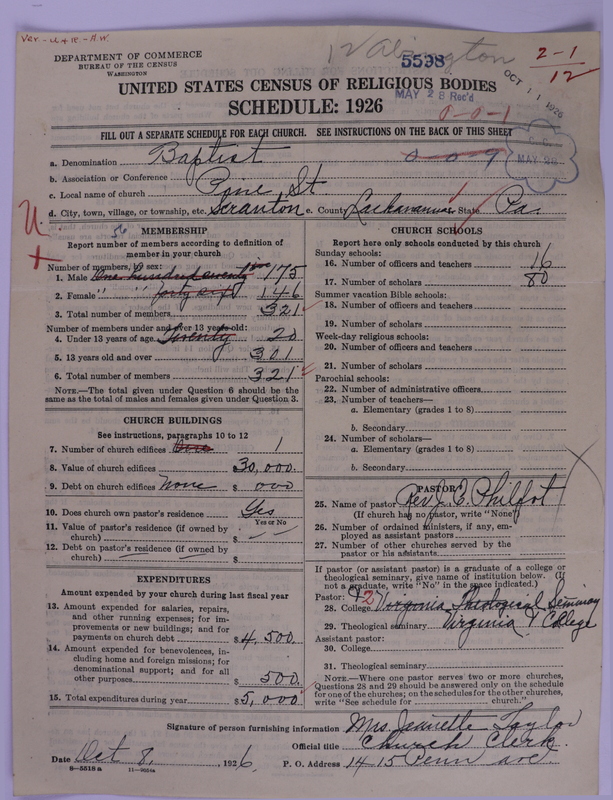 Ver. - U & R. - A.W.
12 Abington
DEPARTMENT OF COMMERCE
BUREAU OF THE CENSUS
WASHINGTON
5598
OCT 11 1926
2-1
12
UNITED STATES CENSUS OF RELIGIOUS BODIES
MAY 28 Rec'd
SCHEDULE: 1926
0-0-1
FILL OUT A SEPARATE SCHEDULE FOR EACH CHURCH. SEE INSTRUCTIONS ON THE BACK OF THIS SHEET
a. Denomination Baptist 0-0-9
MAY 28
b. Association or Conference
c. Local name of church Pine St
d. City, town, village, or township, etc. Scranton e. County Lackawanna State Pa.
MEMBERSHIP
Report number of members according to definition of
member in your church
Number of members, by sex:
1. Male One hundred seventy five 175
2. Female " " forty six 146
3. Total number of members 321
Number of members under and over 13 years old:
4. Under 13 years of age Twenty 20
5. 13 years old and over 301
6. Total number of members 321
NOTE.—The total given under Question 6 should be the
same as the total of males and females given under Question 3.
CHURCH BUILDINGS
See instructions, paragraphs 10 to 12
7. Number of church edifices One 1
8. Value of church edifices $30,000.
9. Debt on church edifices None $ 000
10. Does church own pastor's residence Yes
Yes or No
11. Value of pastor's residence (if owned by
church) $
12. Debt on pastor's residence (if owned by
church) $
EXPENDITURES
Amount expended by your church during last fiscal year
13. Amount expended for salaries, repairs,
and other running expenses; for im-
provements or new buildings; and for
payments on church debt $4,500.
14. Amount expended for benevolences, in-
cluding home and foreign missions; for
denominational support; and for all
other purposes $ 500.
15. Total expenditures during year $5,000.
CHURCH SCHOOLS
Report here only schools conducted by this church
Sunday schools:
16. Number of officers and teachers 16
17. Number of scholars 80
Summer vacation Bible schools:
18. Number of officers and teachers
19. Number of scholars
Week-day religious schools:
20. Number of officers and teachers
21. Number of scholars
Parochial schools:
22. Number of administrative officers
23. Number of teachers—
a. Elementary (grades 1 to 8)
b. Secondary
24. Number of scholars—
a. Elementary (grades 1 to 8)
b. Secondary
PASTOR
25. Name of pastor Rev. J. E. Philpot
(If church has no pastor, write "None")
26. Number of ordained ministers, if any, em-
ployed as assistant pastors
27. Number of other churches served by the
pastor or his assistants
If pastor (or assistant pastor) is a graduate of a college or
theological seminary, give name of institution below. (If
not a graduate, write "No" in the space indicated.)
Pastor:
28. College Virginia Theological Seminary
29. Theological seminary Virginia & College
Assistant pastor:
30. College
31. Theological seminary
NOTE.—Where one pastor serves two or more churches,
Questions 28 and 29 should be answered only on the schedule
for one of the churches; on the schedules for the other churches,
write "See schedule for church."
Signature of person furnishing information Mrs. Jeanette Taylor
Official title Church Clerk.
Date Oct 8, 1926. P. O. Address 1415 Penn ave.
8-5518 a